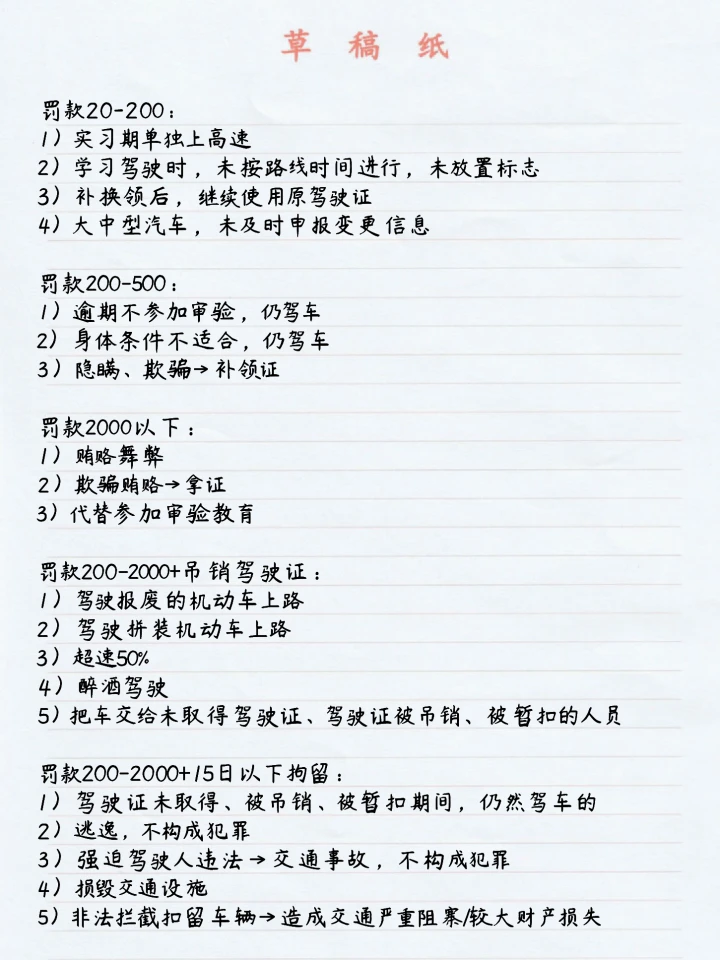 草稿纸
罚款20-200：
1）实习期单独上高速
2）学习驾驶时，未按路线时间进行，未放置标志
3）补换领后，继续使用原驾驶证
4）大中型汽车，未及时申报变更信息
罚款200-500：
1）逾期不参加审验，仍驾车
2）身体条件不适合，仍驾车
3）隐瞒、欺骗→补领证
罚款2000以下：
1）贿赂舞弊
2）欺骗贿赂→拿证
3）代替参加审验教育
罚款200-2000+吊销驾驶证：
1）驾驶报废的机动车上路
2）驾驶拼装机动车上路
3）超速50%
4）醉酒驾驶
5）把车交给未取得驾驶证、驾驶证被吊销、被暂扣的人员
罚款200-2000+15日以下拘留：
1）驾驶证未取得、被吊销、被暂扣期间，仍然驾车的
2）逃逸，不构成犯罪
3）强迫驾驶人违法→交通事故，不构成犯罪
4）损毁交通设施
5）非法拦截扣留车辆→造成交通严重阻塞/较大财产损失